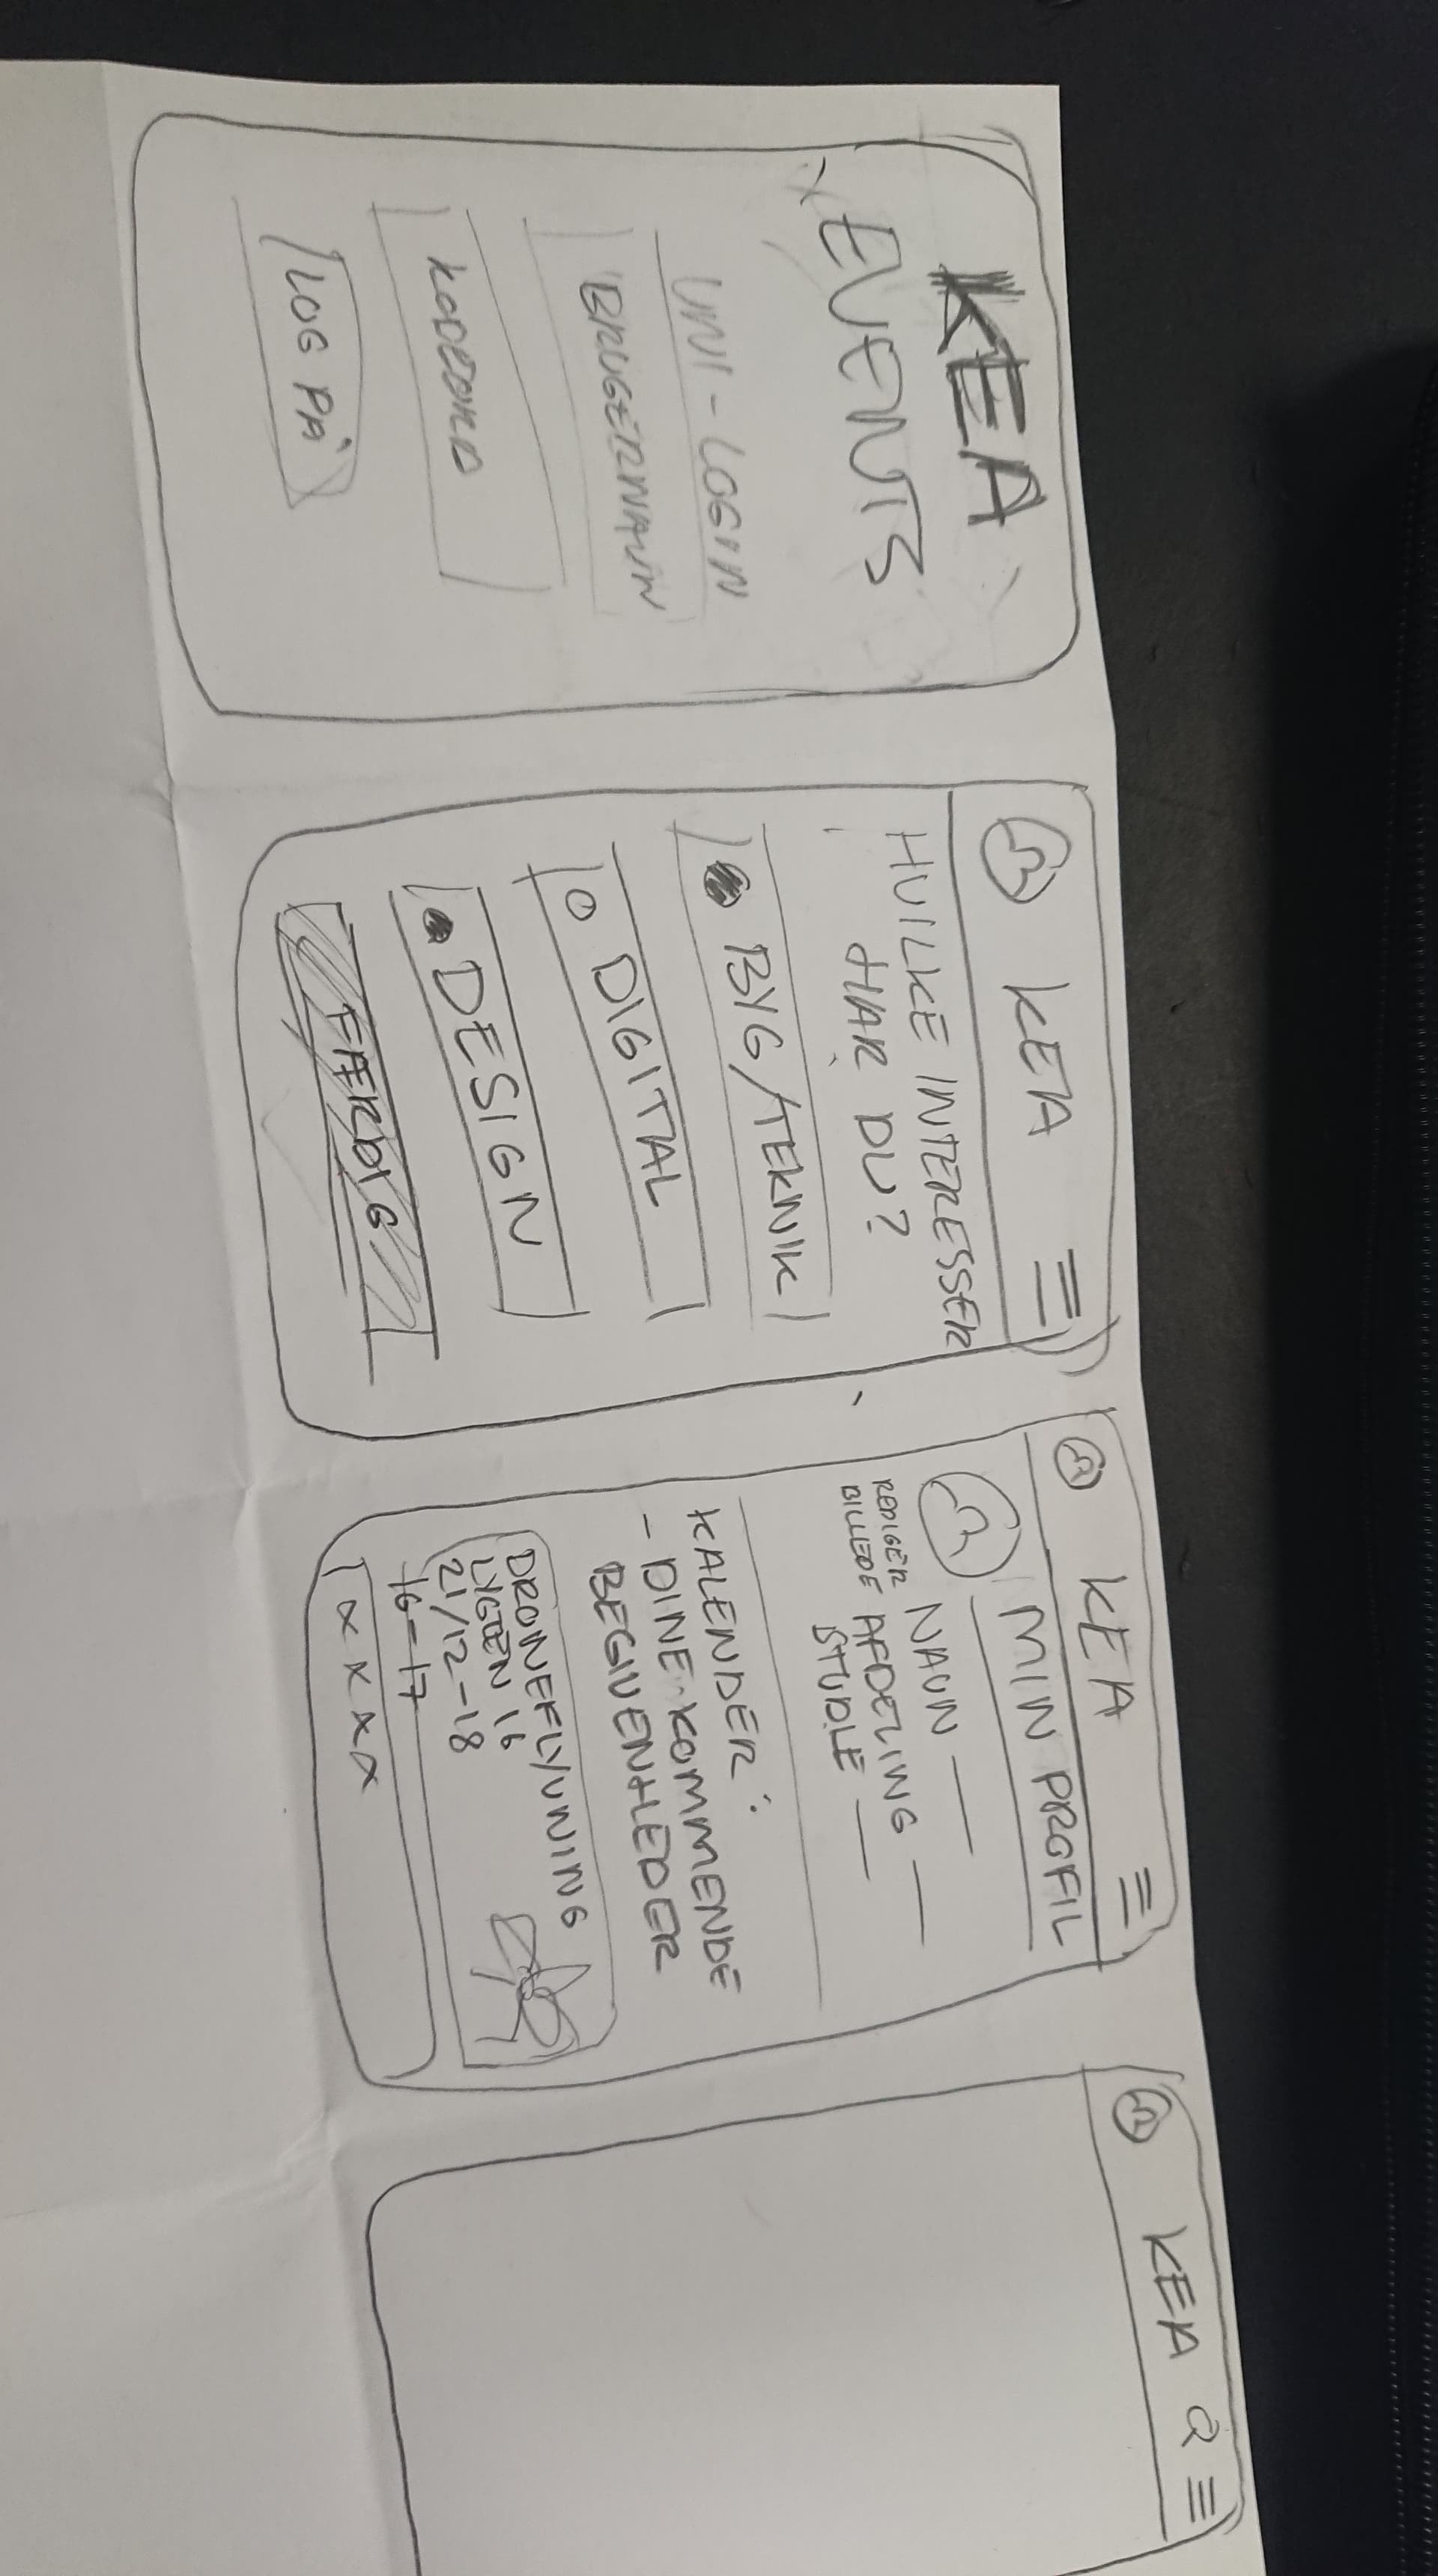 KEA
EVENTS
UNI-LOGIN
BRUGERNAVN
KODEORD
LOG PÅ
KEA
HVILKE INTERESSER
HAR DU?
BYG/TEKNIK
DIGITAL
DESIGN
FÆRDIG
KEA
MIN PROFIL
REDIGER
BILLEDE
NAVN
AFDELING
STUDIE
KALENDER:
- DINE KOMMENDE
BEGIVENHEDER
DRONEFLYVNING
LYGTEN 16
21/12-18
16-17
XXXX
KEA